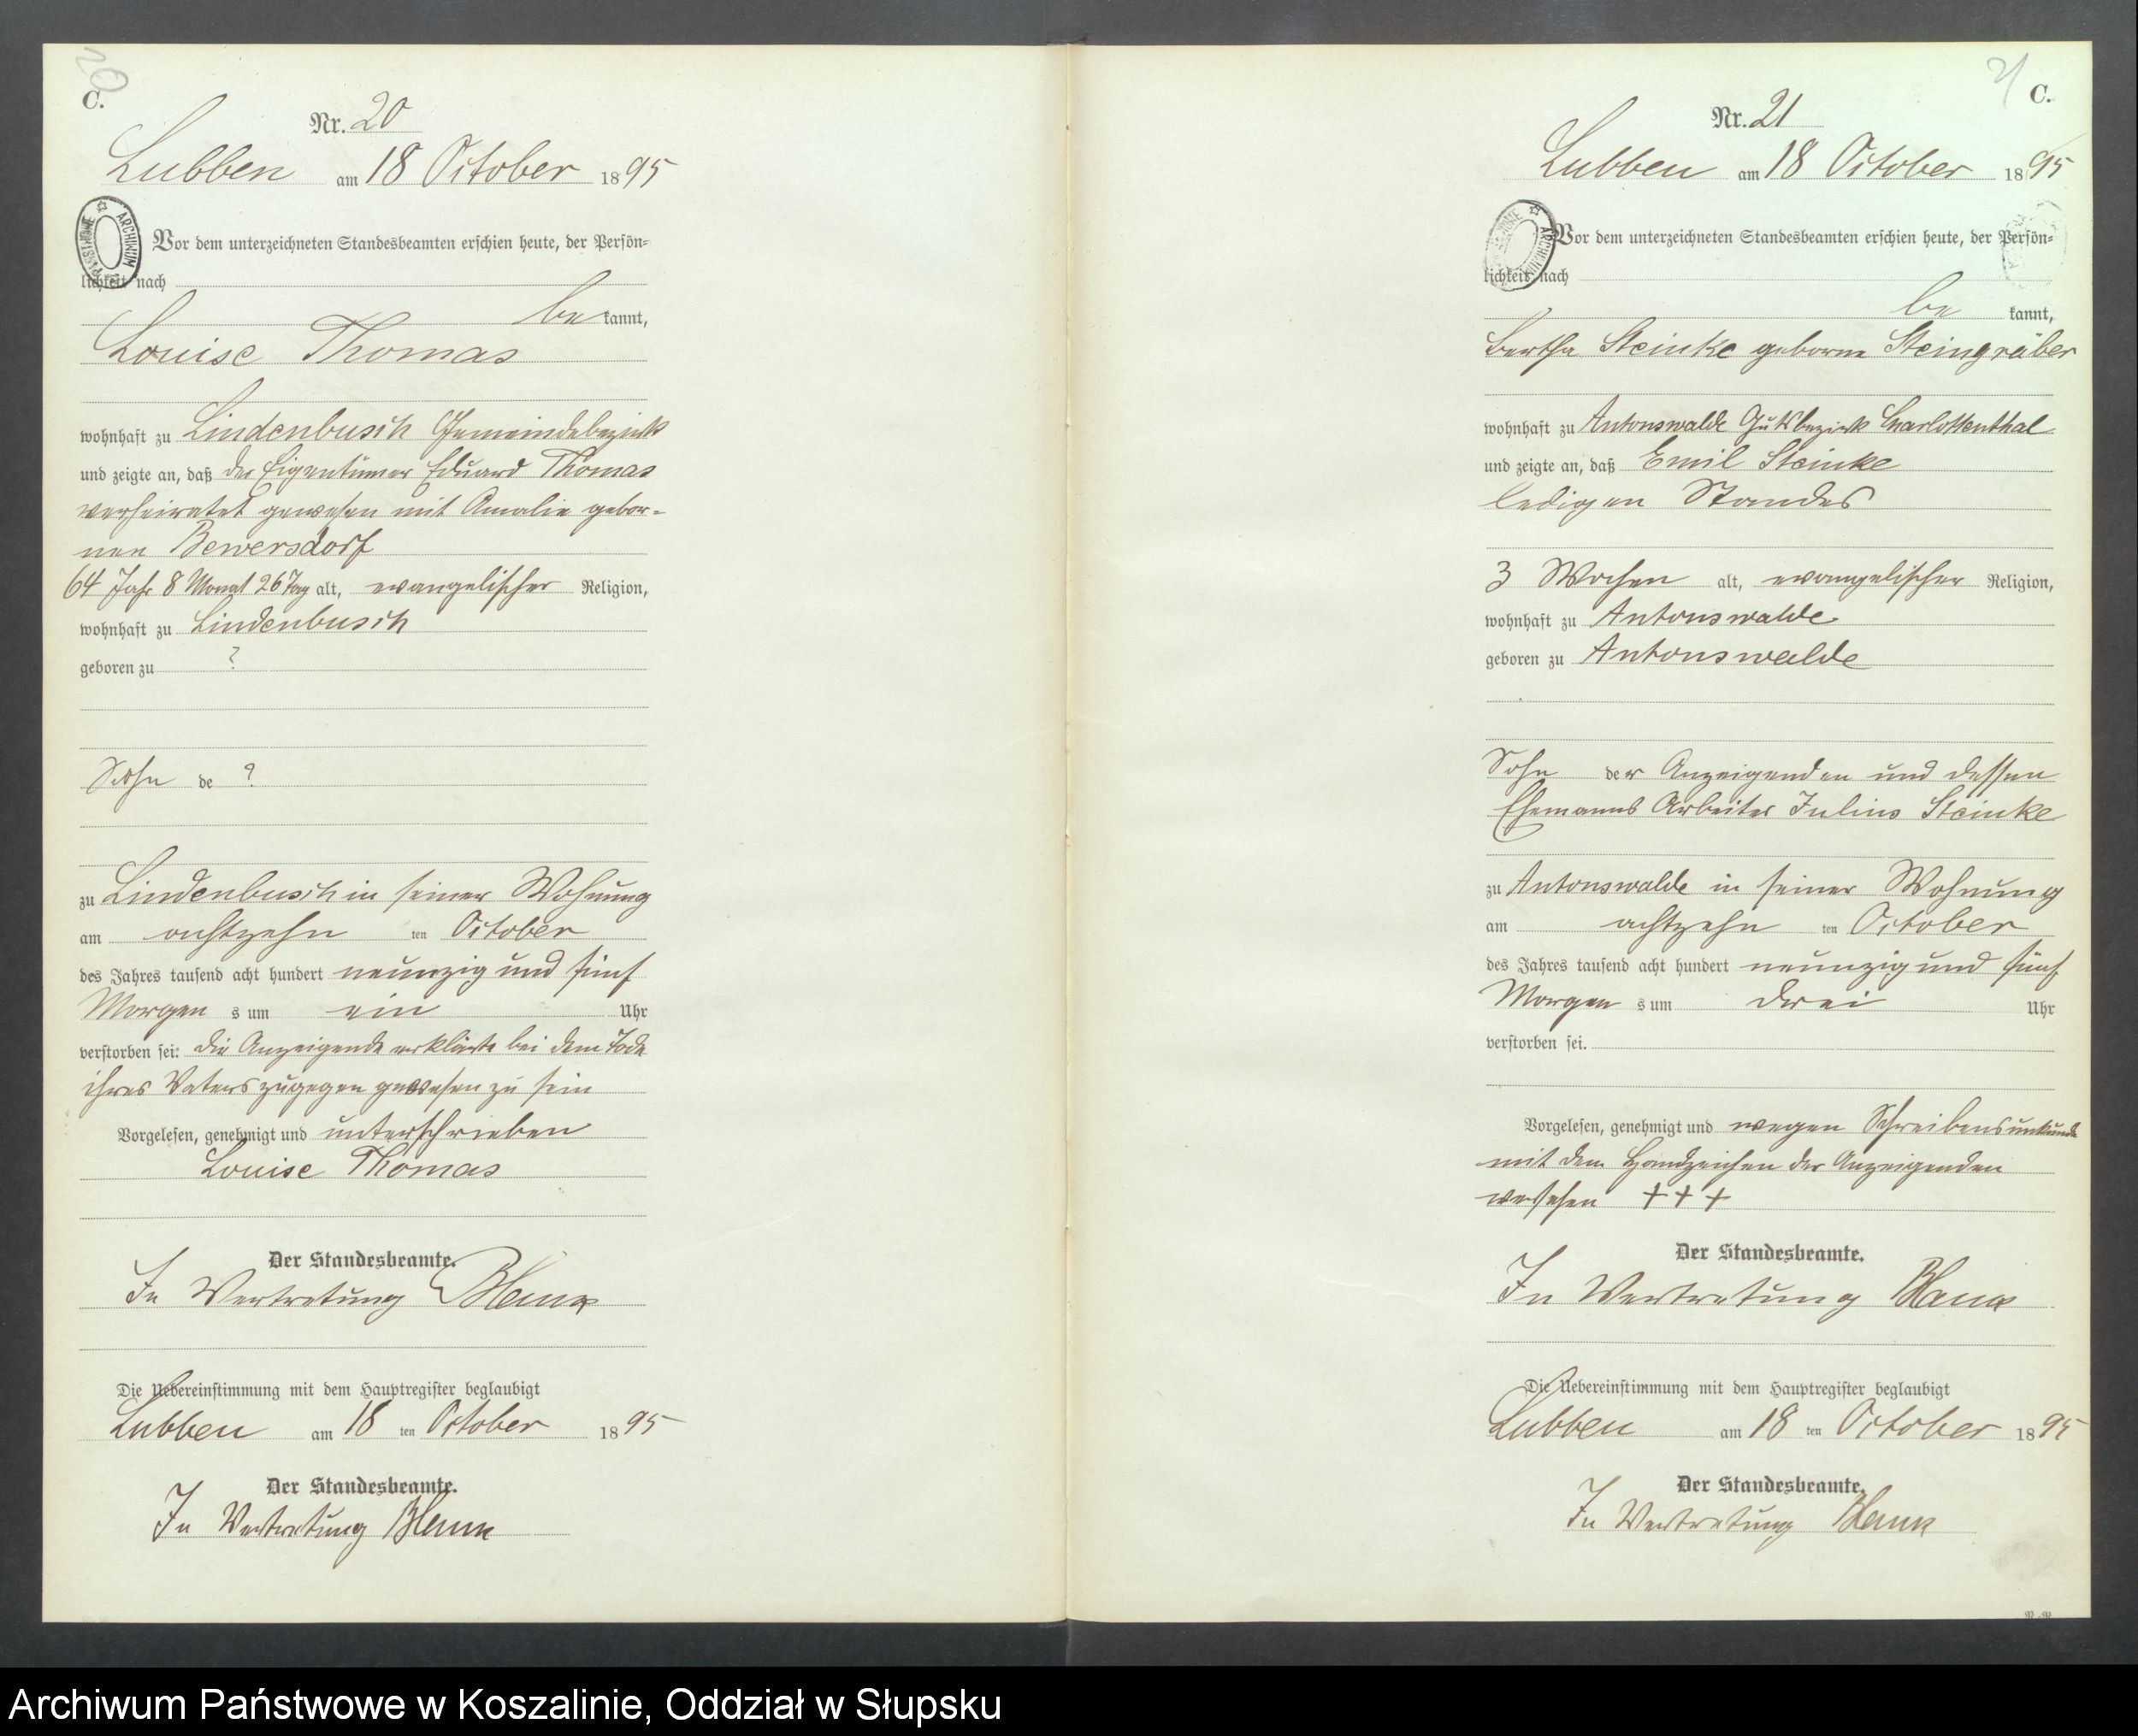 20
C.
Nr. 20
Lubben am 18 October 1895
Vor dem unterzeichneten Standesbeamten erschien heute, der Persön-
lichkeit nach
be kannt,
Louise Thomas
wohnhaft zu Lindenbusch Gemeindebezirk
und zeigte an, daß der Eigentümer Eduard Thomas
verheiratet gewesen mit Amalie gebor-
nen Bewersdorf
64 Jahr 8 Monat 26 Tag alt, evangelischer Religion,
wohnhaft zu Lindenbusch
geboren zu ?
Sohn de ?
zu Lindenbusch in seiner Wohnung
am achtzehn ten October
des Jahres tausend acht hundert neunzig und fünf
Morgen s um ein Uhr
verstorben sei: die Anzeigende erklärte bei dem Tode
ihres Vaters zugegen gewesen zu sein
Vorgelesen, genehmigt und unterschrieben
Louise Thomas
Der Standesbeamte.
In Vertretung Blank
Die Uebereinstimmung mit dem Hauptregister beglaubigt
Lubben am 18 ten October 1895
Der Standesbeamte.
In Vertretung Blank
21
C.
Nr. 21
Lubben am 18 October 1895
Vor dem unterzeichneten Standesbeamten erschien heute, der Persön-
lichkeit nach
be kannt,
Bertha Steinke geborne Steingräber
wohnhaft zu Antonswalde Gutsbezirk Charlottenthal
und zeigte an, daß Emil Steinke
ledigen Standes
3 Wochen alt, evangelischer Religion,
wohnhaft zu Antonswalde
geboren zu Antonswalde
Sohn der Anzeigenden und dessen
Ehemanns Arbeiter Julius Steinke
zu Antonswalde in seiner Wohnung
am achtzehn ten October
des Jahres tausend acht hundert neunzig und fünf
Morgen s um drei Uhr
verstorben sei.
Vorgelesen, genehmigt und wegen Schreibensunkunde
mit dem Handzeichen der Anzeigenden
versehen + + +
Der Standesbeamte.
In Vertretung Blank
Die Uebereinstimmung mit dem Hauptregister beglaubigt
Lubben am 18 ten October 1895
Der Standesbeamte.
In Vertretung Blank
Archiwum Państwowe w Koszalinie, Oddział w Słupsku